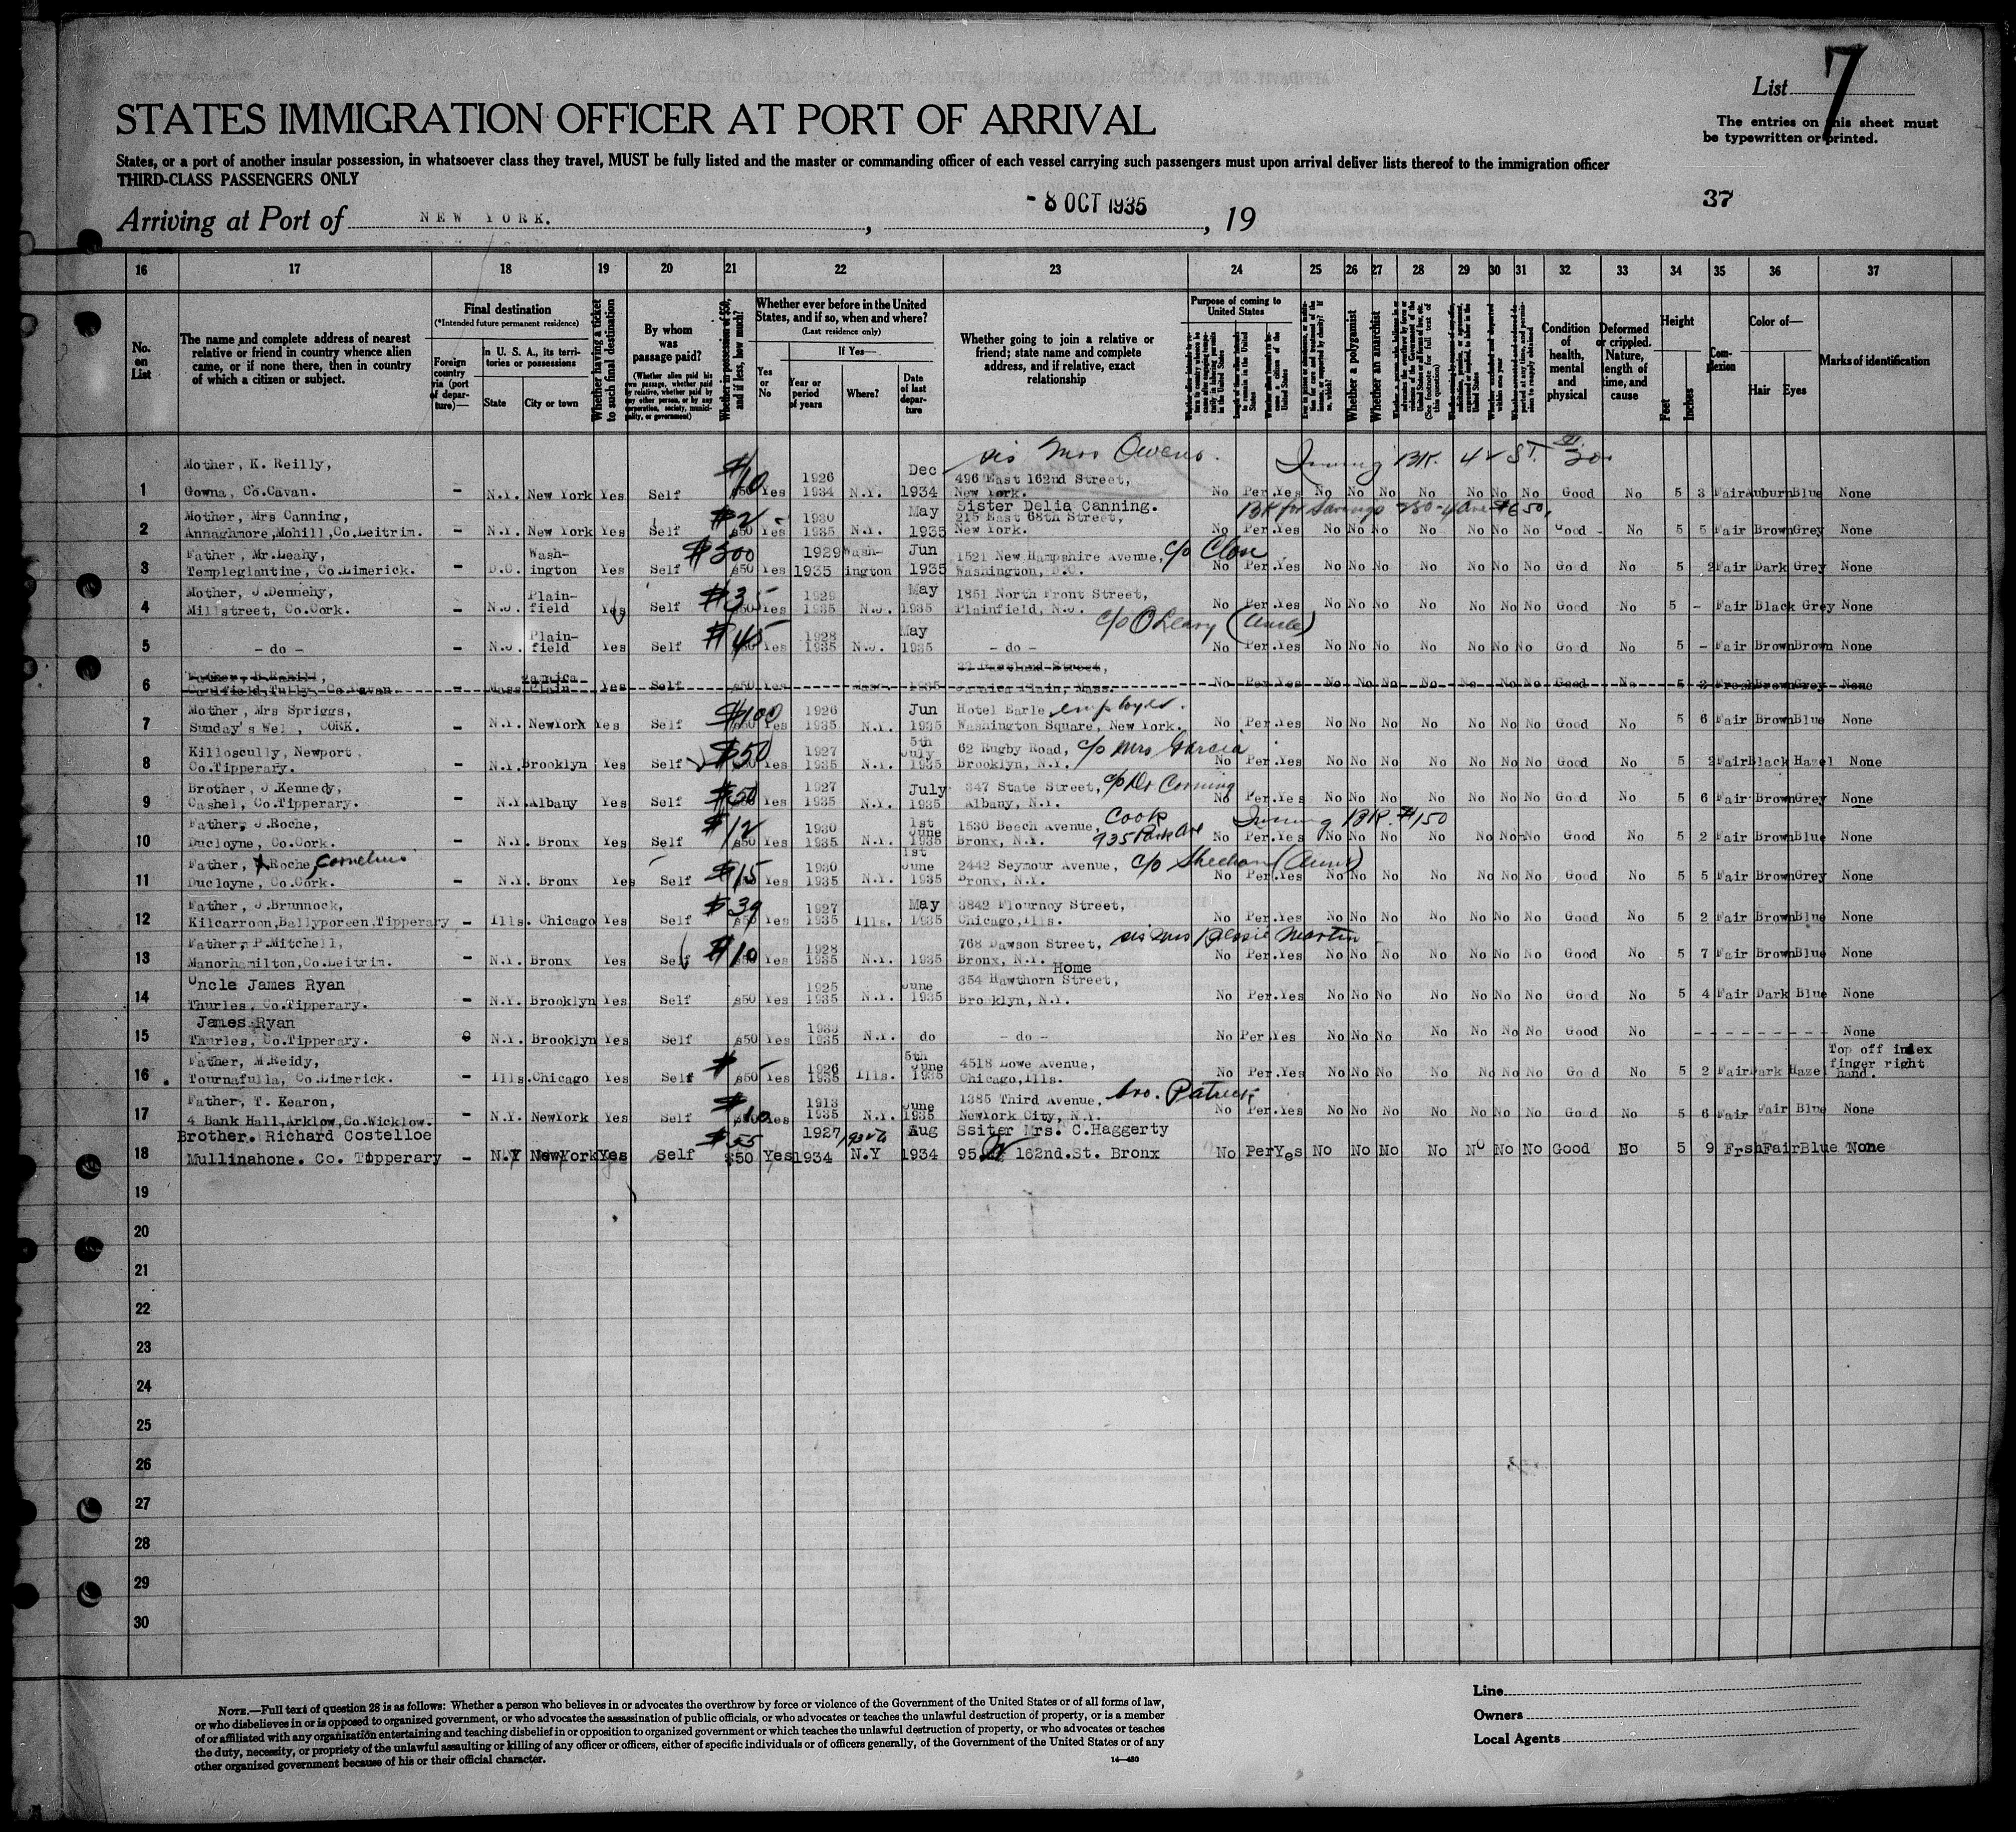 List 7
The entries on this sheet must
be typewritten or printed.
STATES IMMIGRATION OFFICER AT PORT OF ARRIVAL
States, or a port of another insular possession, in whatsoever class they travel, MUST be fully listed and the master or commanding officer of each vessel carrying such passengers must upon arrival deliver lists thereof to the immigration officer
THIRD-CLASS PASSENGERS ONLY
37
Arriving at Port of NEW YORK. , - 8 OCT 1935 , 19
16 17 18 19 20 21 22 23 24 25 26 27 28 29 30 31 32 33 34 35 36 37
No. on List
The name and complete address of nearest relative or friend in country whence alien came, or if none there, then in country of which a citizen or subject.
Final destination
(*Intended future permanent residence)
Foreign country via (port of departure)—
In U. S. A., its territories or possessions
State City or town
Whether having a ticket to such final destination
By whom was passage paid?
(Whether alien paid his own passage, whether paid by relative, whether paid by any other person, or by any corporation, society, municipality, or government)
Whether in possession of $50, and if less, how much?
Whether ever before in the United States, and if so, when and where?
(Last residence only)
Yes or No
If Yes—
Year or period of years Where? Date of last departure
Whether going to join a relative or friend; state name and complete address, and if relative, exact relationship
Purpose of coming to United States
Whether a polygamist
Whether an anarchist
Condition of health, mental and physical
Deformed or crippled. Nature, length of time, and cause
Height
Feet Inches
Complexion
Color of—
Hair Eyes
Marks of identification
sis Mrs Owens. Irving BK. 42 ST.
Mother, K. Reilly, $10 1926 Dec 496 East 162nd Street,
1 Gowna, Co.Cavan. - N.Y. New York Yes Self $50 Yes 1934 N.Y. 1934 New York. No Per. Yes No No No No No No No Good No 5 3 Fair Auburn Blue None
Mother, Mrs Canning, $2 1930 May Sister Delia Canning. 215 East 68th Street, BK for Savings
2 Annaghmore, Mohill, Co.Leitrim. - N.Y. New York Yes Self $50 Yes 1935 N.Y. 1935 New York. No Per. Yes No No No No No No No Good - No 5 5 Fair Brown Grey None
Father, Mr.Leahy, Wash- $300 1929 Wash- Jun 1521 New Hampshire Avenue, c/o Close
3 Templeglantine, Co.Limerick. - D.C. ington Yes Self $50 Yes 1935 ington 1935 Washington, D.C. No Per. Yes No No No No No No No Good No 5 2 Fair Dark Grey None
Mother, J.Dennehy, Plain- $35 1929 May 1851 North Front Street,
4 Millstreet, Co.Cork. - N.J. field Yes Self $50 Yes 1935 N.J. 1935 Plainfield, N.J. No Per. Yes No No No No No No No Good No 5 - Fair Black Grey None
Plain- $45 1928 May c/o O'Leary (Uncle)
5 - do - - N.J. field Yes Self $50 Yes 1935 N.J. 1935 - do - No Per. Yes No No No No No No No Good No 5 - Fair Brown Brown None
Jamaica Street,
6 Co.Cavan - Mass Plain Yes Self $50 Yes Mass 1935 Jamaica Plain, Mass. No Per Yes No No No No No No No Good No 5 3 Fresh Brown Grey None
Mother, Mrs Spriggs, $100 1926 Jun Hotel Earle, employer.
7 Sunday's Wel , CORK. - N.Y. NewYork Yes Self $50 Yes 1935 N.Y. 1935 Washington Square, New York. No Per. Yes No No No No No No No Good No 5 6 Fair Brown Blue None
Killoscully, Newport, $50 1927 5th July 62 Rugby Road, c/o Mrs Garcia
8 Co.Tipperary. - N.Y. Brooklyn Yes Self $50 Yes 1935 N.Y. 1935 Brooklyn, N.Y. No Per. Yes No No No No No No No Good No 5 2 Fair Black Hazel None
Brother, J.Kennedy, $50 1927 July 347 State Street, c/o Dr Corning
9 Cashel, Co.Tipperary. - N.Y. Albany Yes Self $50 Yes 1935 N.Y. 1935 Albany, N.Y. No Per. Yes No No No No No No No Good No 5 6 Fair Brown Grey None
Father, J.Roche, $12 1930 1st June 1530 Beech Avenue, Cook 935 Park Ave Irving BK. $150
10 Ducloyne, Co.Cork. - N.Y. Bronx Yes Self $50 Yes 1935 N.Y. 1935 Bronx, N.Y. No Per. Yes No No No No No No No Good No 5 2 Fair Brown Blue None
Father, Roche, Cornelius $15 1930 1st June 2442 Seymour Avenue, c/o Sheehan (Aunt)
11 Ducloyne, Co.Cork. - N.Y. Bronx Yes Self $50 Yes 1935 N.Y. 1935 Bronx, N.Y. No Per. Yes No No No No No No No Good No 5 5 Fair Brown Grey None
Father, J.Brunnock, $39 1927 May 3842 Flournoy Street,
12 Kilcarroon, Ballyporeen, Tipperary - Ills. Chicago Yes Self $50 Yes 1935 Ills. 1935 Chicago, Ills. No Per. Yes No No No No No No No Good No 5 2 Fair Brown Blue None
Father, P.Mitchell, $10 1928 768 Dawson Street, sis Mrs Bessie Martin
13 Manorhamilton, Co.Leitrim. - N.Y. Bronx Yes Self $50 Yes 1935 N.Y. 1935 Bronx, N.Y. No Per. Yes No No No No No No No Good No 5 7 Fair Brown Blue None
Uncle James Ryan 1925 June Home 354 Hawthorn Street,
14 Thurles, Co.Tipperary. - N.Y. Brooklyn Yes Self $50 Yes 1935 N.Y. 1935 Brooklyn, N.Y. No Per. Yes No No No No No No No Good No 5 4 Fair Dark Blue None
James Ryan
15 Thurles, Co.Tipperary. N.Y. Brooklyn Yes Self $50 Yes 1935 N.Y. do - do - No Per. Yes No No No No No No No Good No - - - - - - - - - None
Father, M.Reidy, $ 1926 5th June 4518 Lowe Avenue, Top off index finger right hand.
16 Tournafulla, Co.Limerick. - Ills. Chicago Yes Self $50 Yes 1935 Ills. 1935 Chicago, Ills. No Per. Yes No No No No No No No Good No 5 2 Fair Dark Hazel
Father, T. Kearon, $10 1913 June 1385 Third Avenue, bro. Patrick
17 4 Bank Hall, Arklow, Co.Wicklow. - N.Y. NewYork Yes Self $50 Yes 1935 N.Y. 1935 NewYork City, N.Y. No Per. Yes No No No No No No No Good No 5 6 Fair Fair Blue None
Brother. Richard Costelloe $55 1927 Aug Ssiter Mrs. C.Haggerty
18 Mullinahone. Co. Tipperary - N.Y NewYork Yes Self $50 Yes 1934 N.Y 1934 95 162nd.St. Bronx No Per Yes No No No No No No No Good No 5 9 Frsh Fair Blue None
19
20
21
22
23
24
25
26
27
28
29
30
NOTE.—Full text of question 28 is as follows: Whether a person who believes in or advocates the overthrow by force or violence of the Government of the United States or of all forms of law,
or who disbelieves in or is opposed to organized government, or who advocates the assassination of public officials, or who advocates or teaches the unlawful destruction of property, or is a member
of or affiliated with any organization entertaining and teaching disbelief in or opposition to organized government or which teaches the unlawful destruction of property, or who advocates or teaches
the duty, necessity, or propriety of the unlawful assaulting or killing of any officer or officers, either of specific individuals or of officers generally, of the Government of the United States or of any
other organized government because of his or their official character.
14—430
Line
Owners
Local Agents